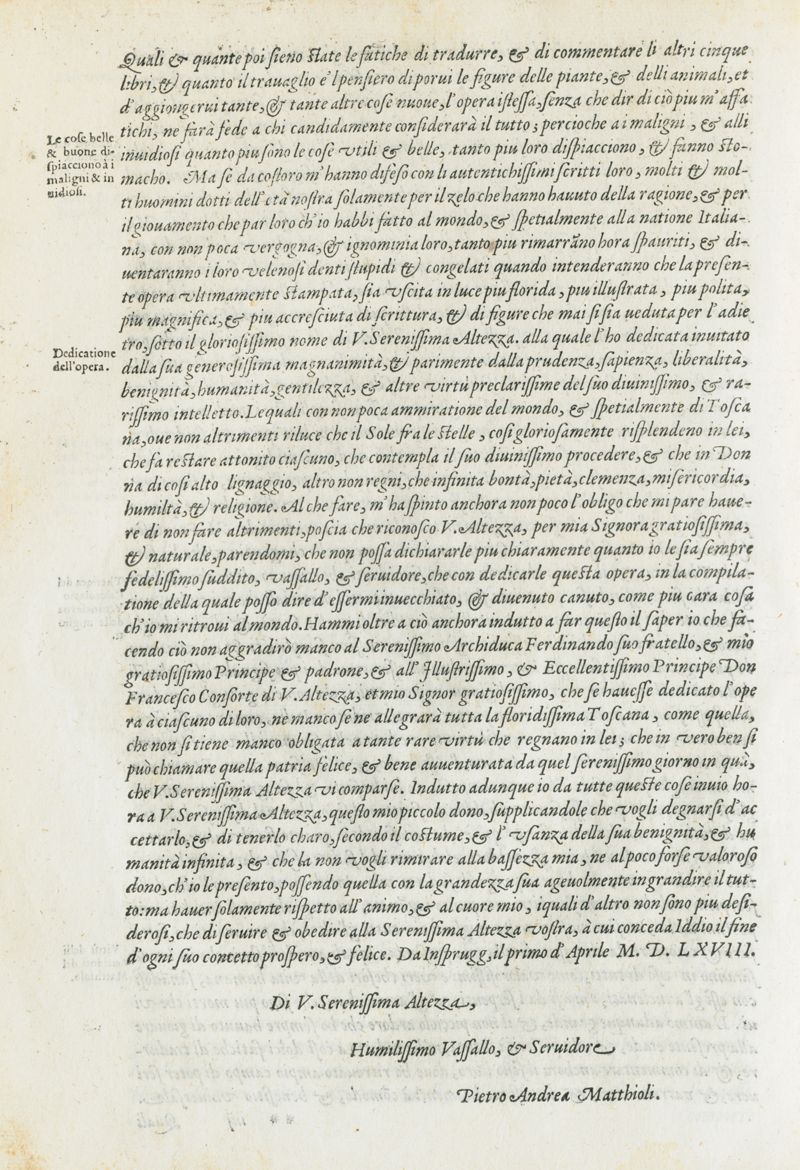 Quali & quante poi sieno state le fatiche di tradurre, & di commentare li altri cinque
libri, & quanto il trauaglio e'l pensiero di porui le figure delle piante, & delli animali, et
d'aggiongerui tante, & tante altre cose nuoue, l'opera istessa, senza che dir di ciò piu m'affa
tichi, ne farà fede a chi candidamente considerarà il tutto; percioche a i maligni, & alli
inuidiosi quanto piu sono le cose vtili & belle, tanto piu loro dispiacciono, & fanno sto-
macho. Ma se da costoro m'hanno difeso con li autentichissimi scritti loro, molti & mol-
ti huomini dotti dell'età nostra solamente per il zelo che hanno hauuto della ragione, & per
il giouamento che par loro ch'io habbi fatto al mondo, & spetialmente alla natione Italia-
na, con non poca vergogna, & ignominia loro, tanto piu rimarrano hora spauriti, & di-
uentaranno i loro velenosi denti stupidi & congelati quando intenderanno che la presen-
te opera vltimamente stampata, sia vscita in luce piu florida, piu illustrata, piu polita,
piu magnifica, & piu accresciuta di scrittura, & di figure che mai si sia ueduta per l'adie
tro, sotto il gloriosissimo nome di V. Serenissima Altezza. alla quale l'ho dedicata inuitato
dalla sua generosissima magnanimità, & parimente dalla prudenza, sapienza, liberalità,
benignità, humanità, gentilezza, & altre virtù preclarissime del suo diuinissimo, & ra-
rissimo intelletto. Le quali con non poca ammiratione del mondo, & spetialmente di Tosca
na, oue non altrimenti riluce che il Sole fra le stelle, cosi gloriosamente risplendeno in lei,
che fa restare attonito ciascuno, che contempla il suo diuinissimo procedere, & che in Don
na di cosi alto lignaggio, altro non regni, che infinita bontà, pietà, clemenza, misericordia,
humiltà, & religione. Al che fare, m'ha spinto anchora non poco l'obligo che mi pare haue-
re di non fare altrimenti, poscia che riconosco V. Altezza, per mia Signora gratiosissima,
& naturale, parendomi, che non possa dichiararle piu chiaramente quanto io le sia sempre
fedelissimo suddito, vassallo, & seruidore, che con dedicarle questa opera, in la compila-
tione della quale posso dire d'essermi inuecchiato, & diuenuto canuto, come piu cara cosa
ch'io mi ritroui al mondo. Hammi oltre a ciò anchora indutto a far questo il saper io che fa-
cendo ciò non aggradirò manco al Serenissimo Archiduca Ferdinando suo fratello, & mio
gratiosissimo Principe & padrone, & all' Illustrissimo, & Eccellentissimo Principe Don
Francesco Consorte di V. Altezza, et mio Signor gratiosissimo, che se hauesse dedicato l'ope
ra à ciascuno di loro, ne manco se ne allegrarà tutta la floridissima Toscana, come quella,
che non si tiene manco obligata a tante rare virtù che regnano in lei; che in vero ben si
può chiamare quella patria felice, & bene auuenturata da quel serenissimo giorno in quà,
che V. Serenissima Altezza vi comparse. Indutto adunque io da tutte queste cose inuio ho-
ra a V. Serenissima Altezza, questo mio piccolo dono, supplicandole che vogli degnarsi d'ac
cettarlo, & di tenerlo charo, secondo il costume, & l'vsanza della sua benignità, & hu
manità infinita, & che la non vogli rimirare alla bassezza mia, ne al poco forse valoroso
dono, ch'io le presento, possendo quella con la grandezza sua ageuolmente ingrandire il tut-
to: ma hauer solamente rispetto all'animo, & al cuore mio, i quali d'altro non sono piu desi-
derosi, che di seruire & obedire alla Serenissima Altezza vostra, à cui conceda Iddio il fine
d'ogni suo concetto prospero, & felice. Da Insprugg, il primo d'Aprile M. D. LXVIII.
Di V. Serenissima Altezza,
Humilissimo Vassallo, & Seruidore
Pietro Andrea Matthioli.
Le cose belle
& buone di-
spiacciono à i
maligni & in
uidiosi.
Dedicatione
dell'opera.